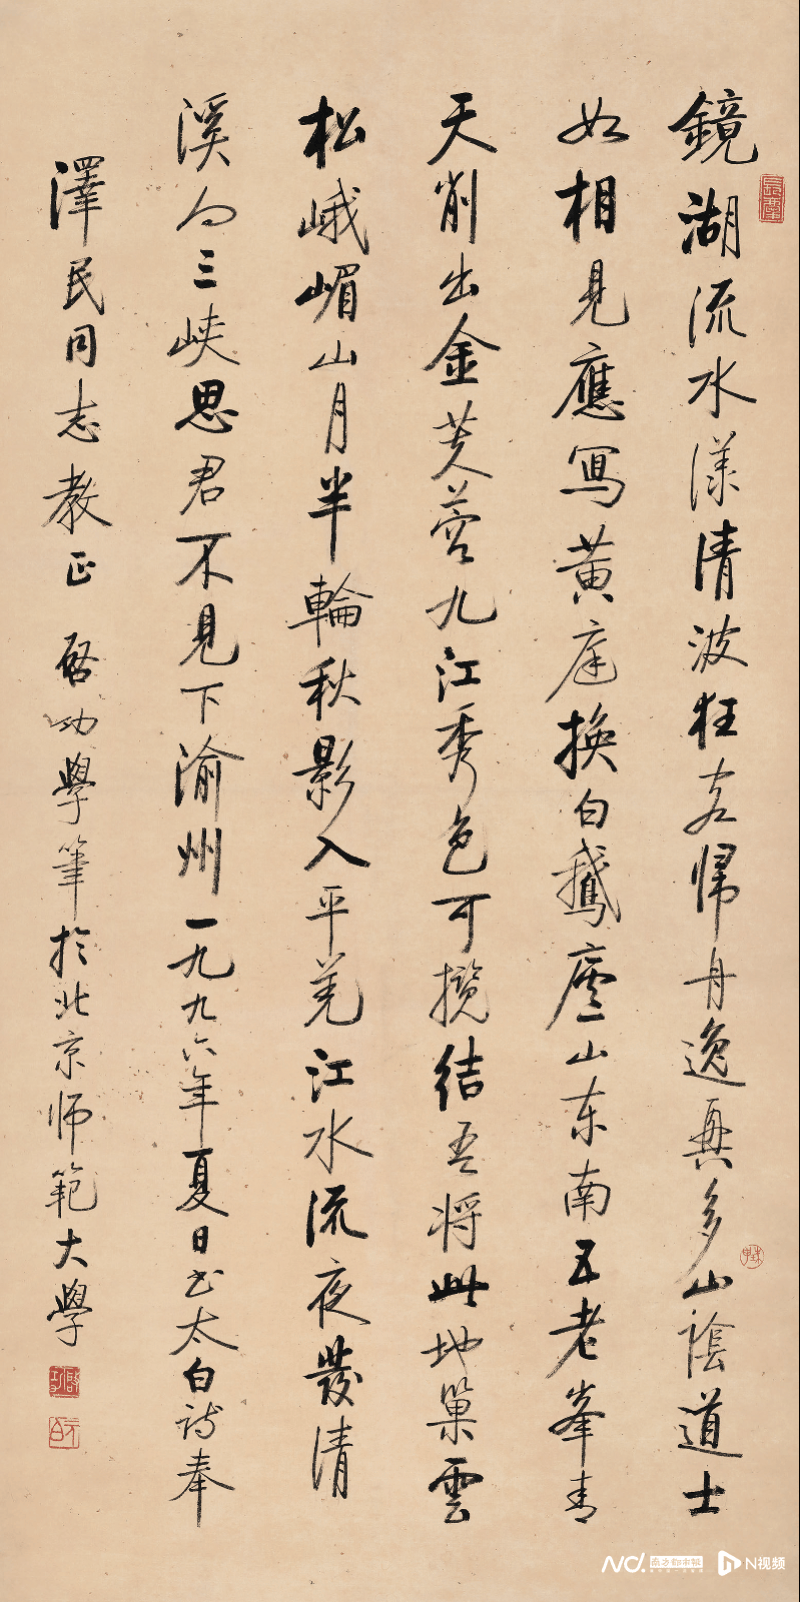 鏡湖流水漾清波狂客歸舟逸興多山陰道士
如相見應寫黃庭換白鵝廬山東南五老峯青
天削出金芙蓉九江秀色可攬結吾將此地巢雲
松峨嵋山月半輪秋影入平羌江水流夜發清
溪向三峽思君不見下渝州一九九六年夏日書太白詩奉
澤民同志教正 啓功學筆於北京师範大學
啟功
元白
南方都市報
N视频